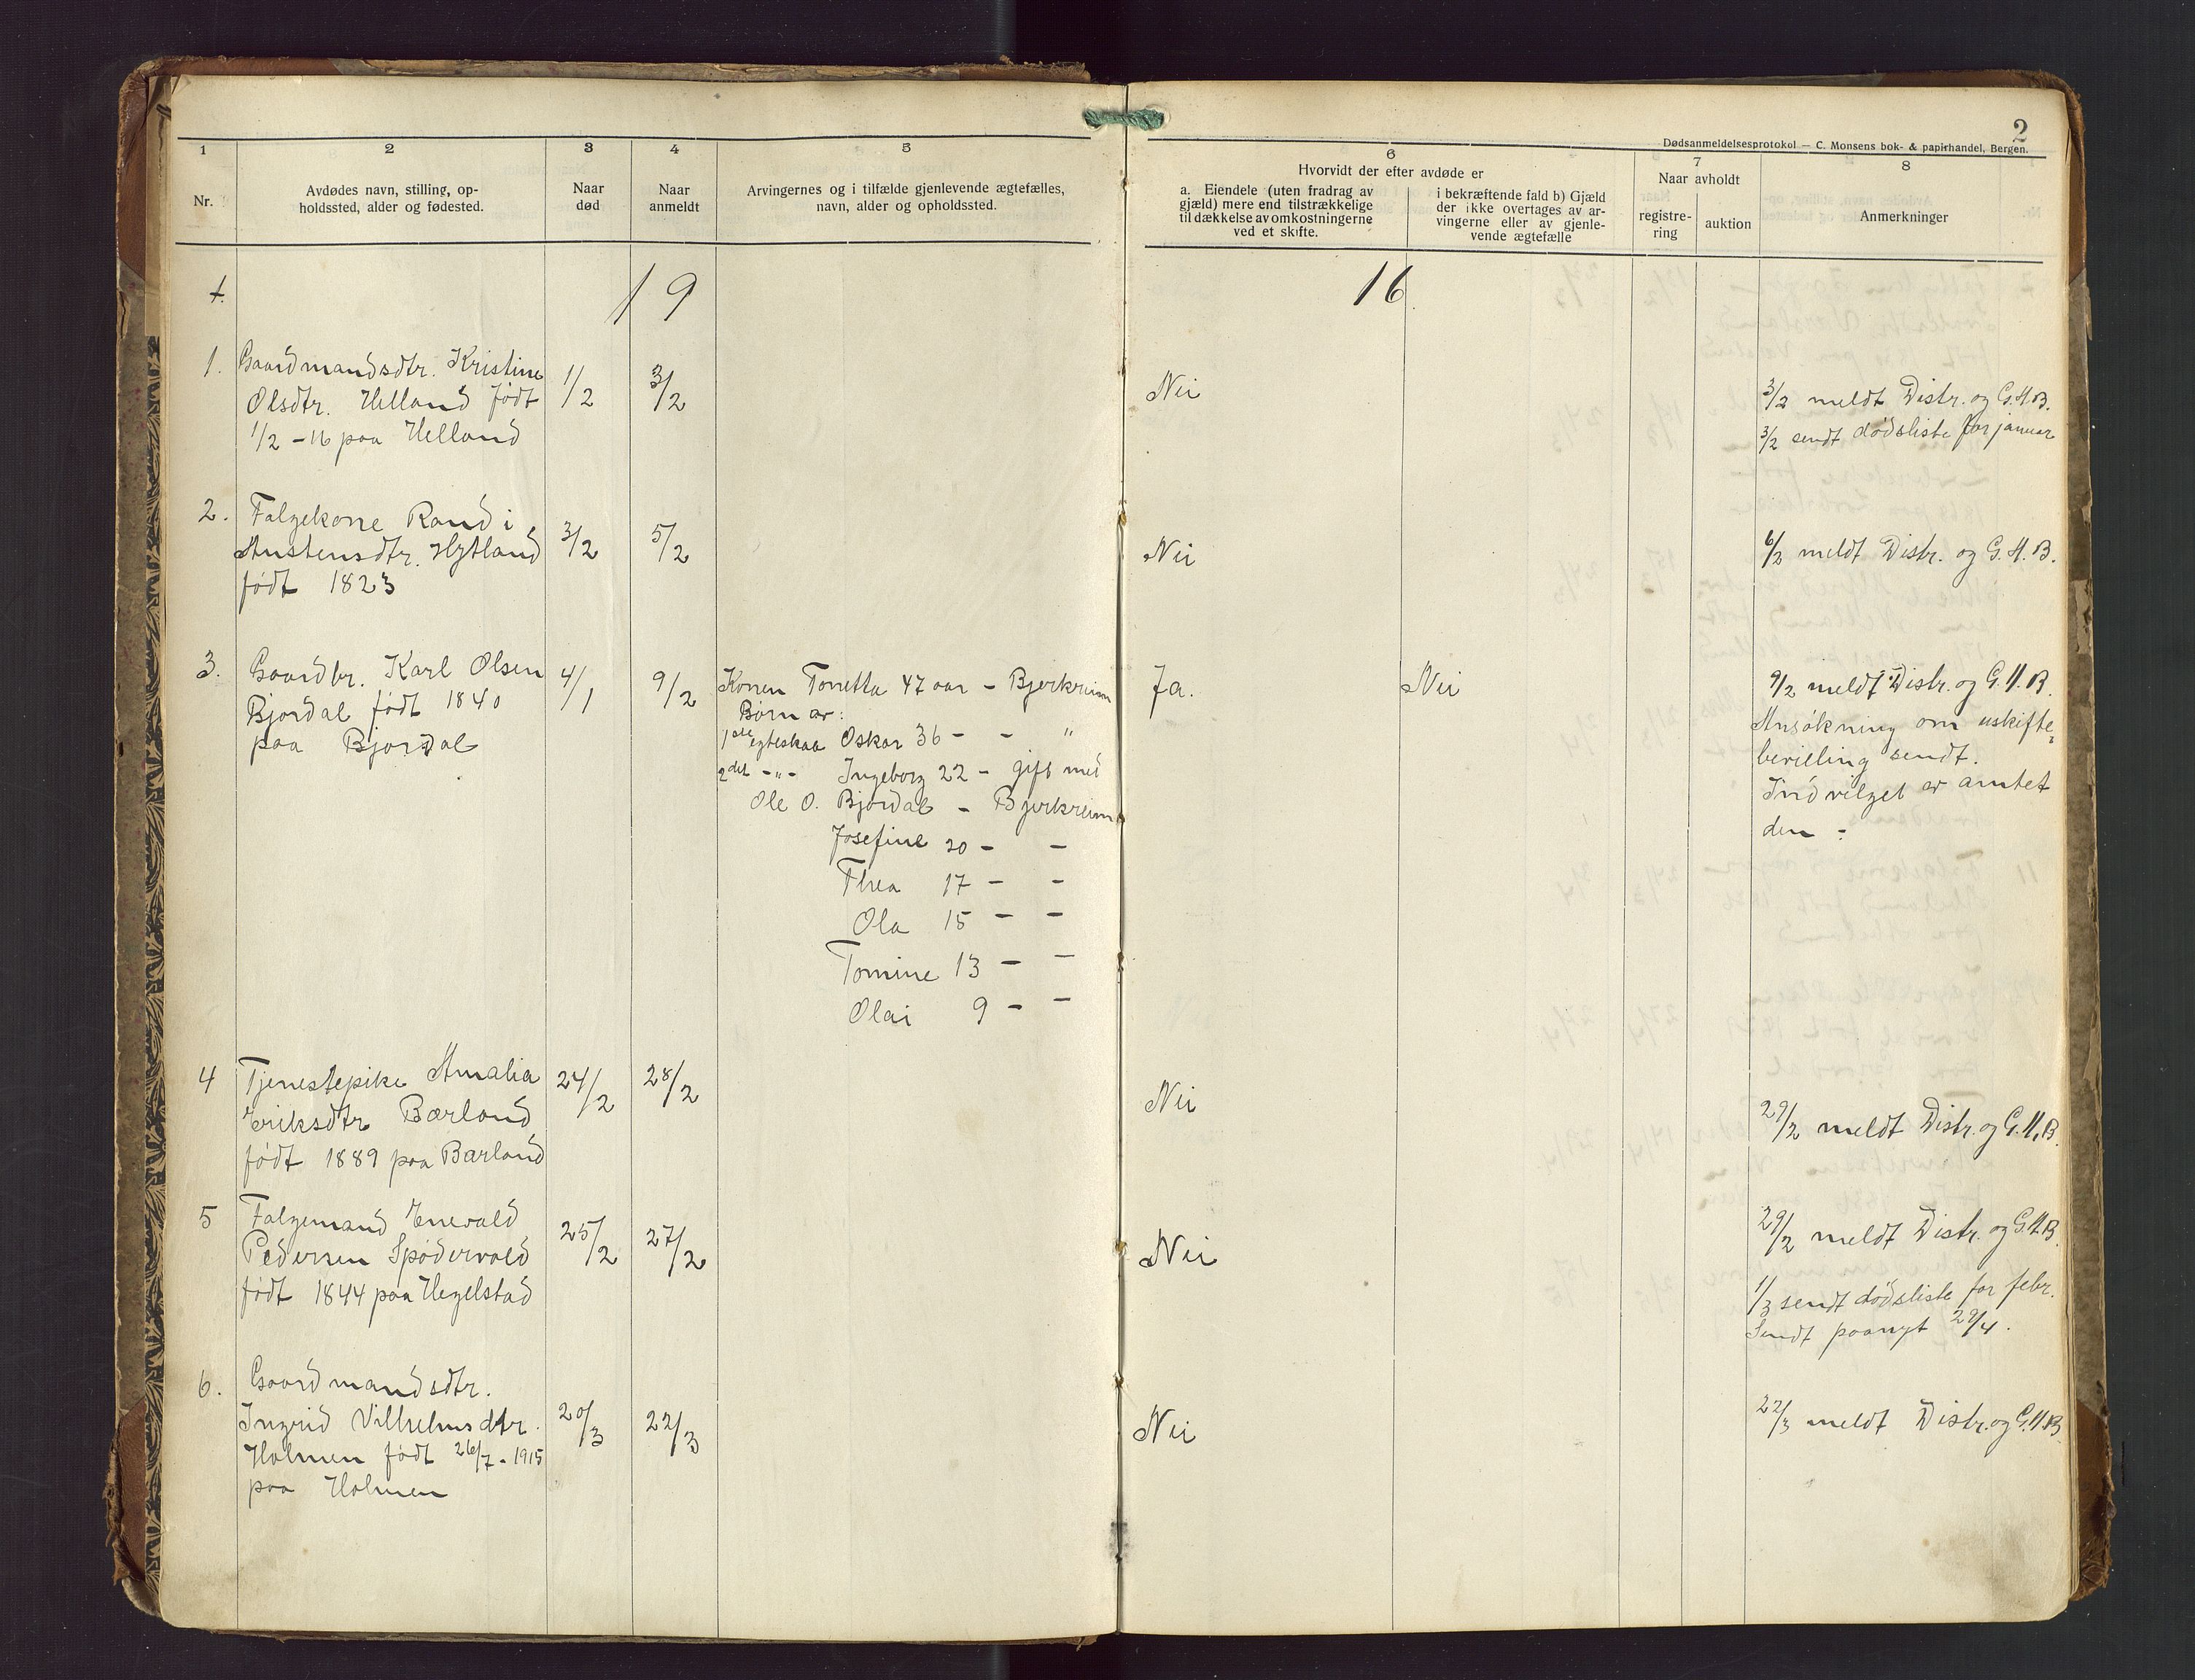 2
Dødsanmeldelsesprotokol — C. Monsens bok- & papirhandel, Bergen.
1
Nr.
2
Avdødes navn, stilling, op-
holdssted, alder og fødested.
3
Naar
død
4
Naar
anmeldt
5
Arvingernes og i tilfælde gjenlevende ægtefælles,
navn, alder og opholdssted.
6
Hvorvidt der efter avdøde er
a. Eiendele (uten fradrag av
gjæld) mere end tilstrækkelige
til dækkelse av omkostningerne
ved et skifte.
i bekræftende fald b) Gjæld
der ikke overtages av ar-
vingerne eller av gjenle-
vende ægtefælle
7
Naar avholdt
registre-
ring
auktion
8
Anmerkninger
19 16
1.
Gaardmandsdtr. Kristine
Olsdtr. Helland født
1/2 - 16 paa Helland
1/2
3/2
Nei
3/2 meldt Distr. og G.H.B.
3/2 sendt dødsliste for januar
2.
Følgekone Randi
Austensdtr. Hytland
født 1823
3/2
5/2
Nei
6/2 meldt Distr. og G.H.B.
3.
Gaardbr. Karl Olsen
Bjordal født 1840
paa Bjordal
4/1
9/2
Konen Tonetta 47 aar - Bjerkreim
Børn av:
1ste egteskab Oskar 36 - - "
2det - " - Ingeborg 22 - gift med
Ole O. Bjordal - Bjerkreim
Josefine 20 - -
Thea 17 - -
Ola 15 - -
Tomine 13 - -
Olai 9 - -
Ja.
Nei
9/2 meldt Distr. og G.H.B.
Ansøkning om uskifte-
bevilling sendt.
Indvilget av amtet
den -
4
Tjenestepike Amalia
Eriksdtr Bærland
født 1889 paa Bærland
24/2
28/2
Nei
29/2 meldt Distr. og G.H.B.
5
Følgemand Enevald
Pedersen Spødervold
født 1844 paa Hegelstad
25/2
27/2
Nei
29/2 meldt Distr. og G.H.B.
1/3 sendt dødsliste for febr.
Sendt paanyt 29/4.
6.
Gaardmandsdtr.
Ingrid Vilhelmsdtr.
Holmen født 26/7 - 1915
paa Holmen
20/3
22/3
Nei
22/3 meldt Distr. og G.H.B.